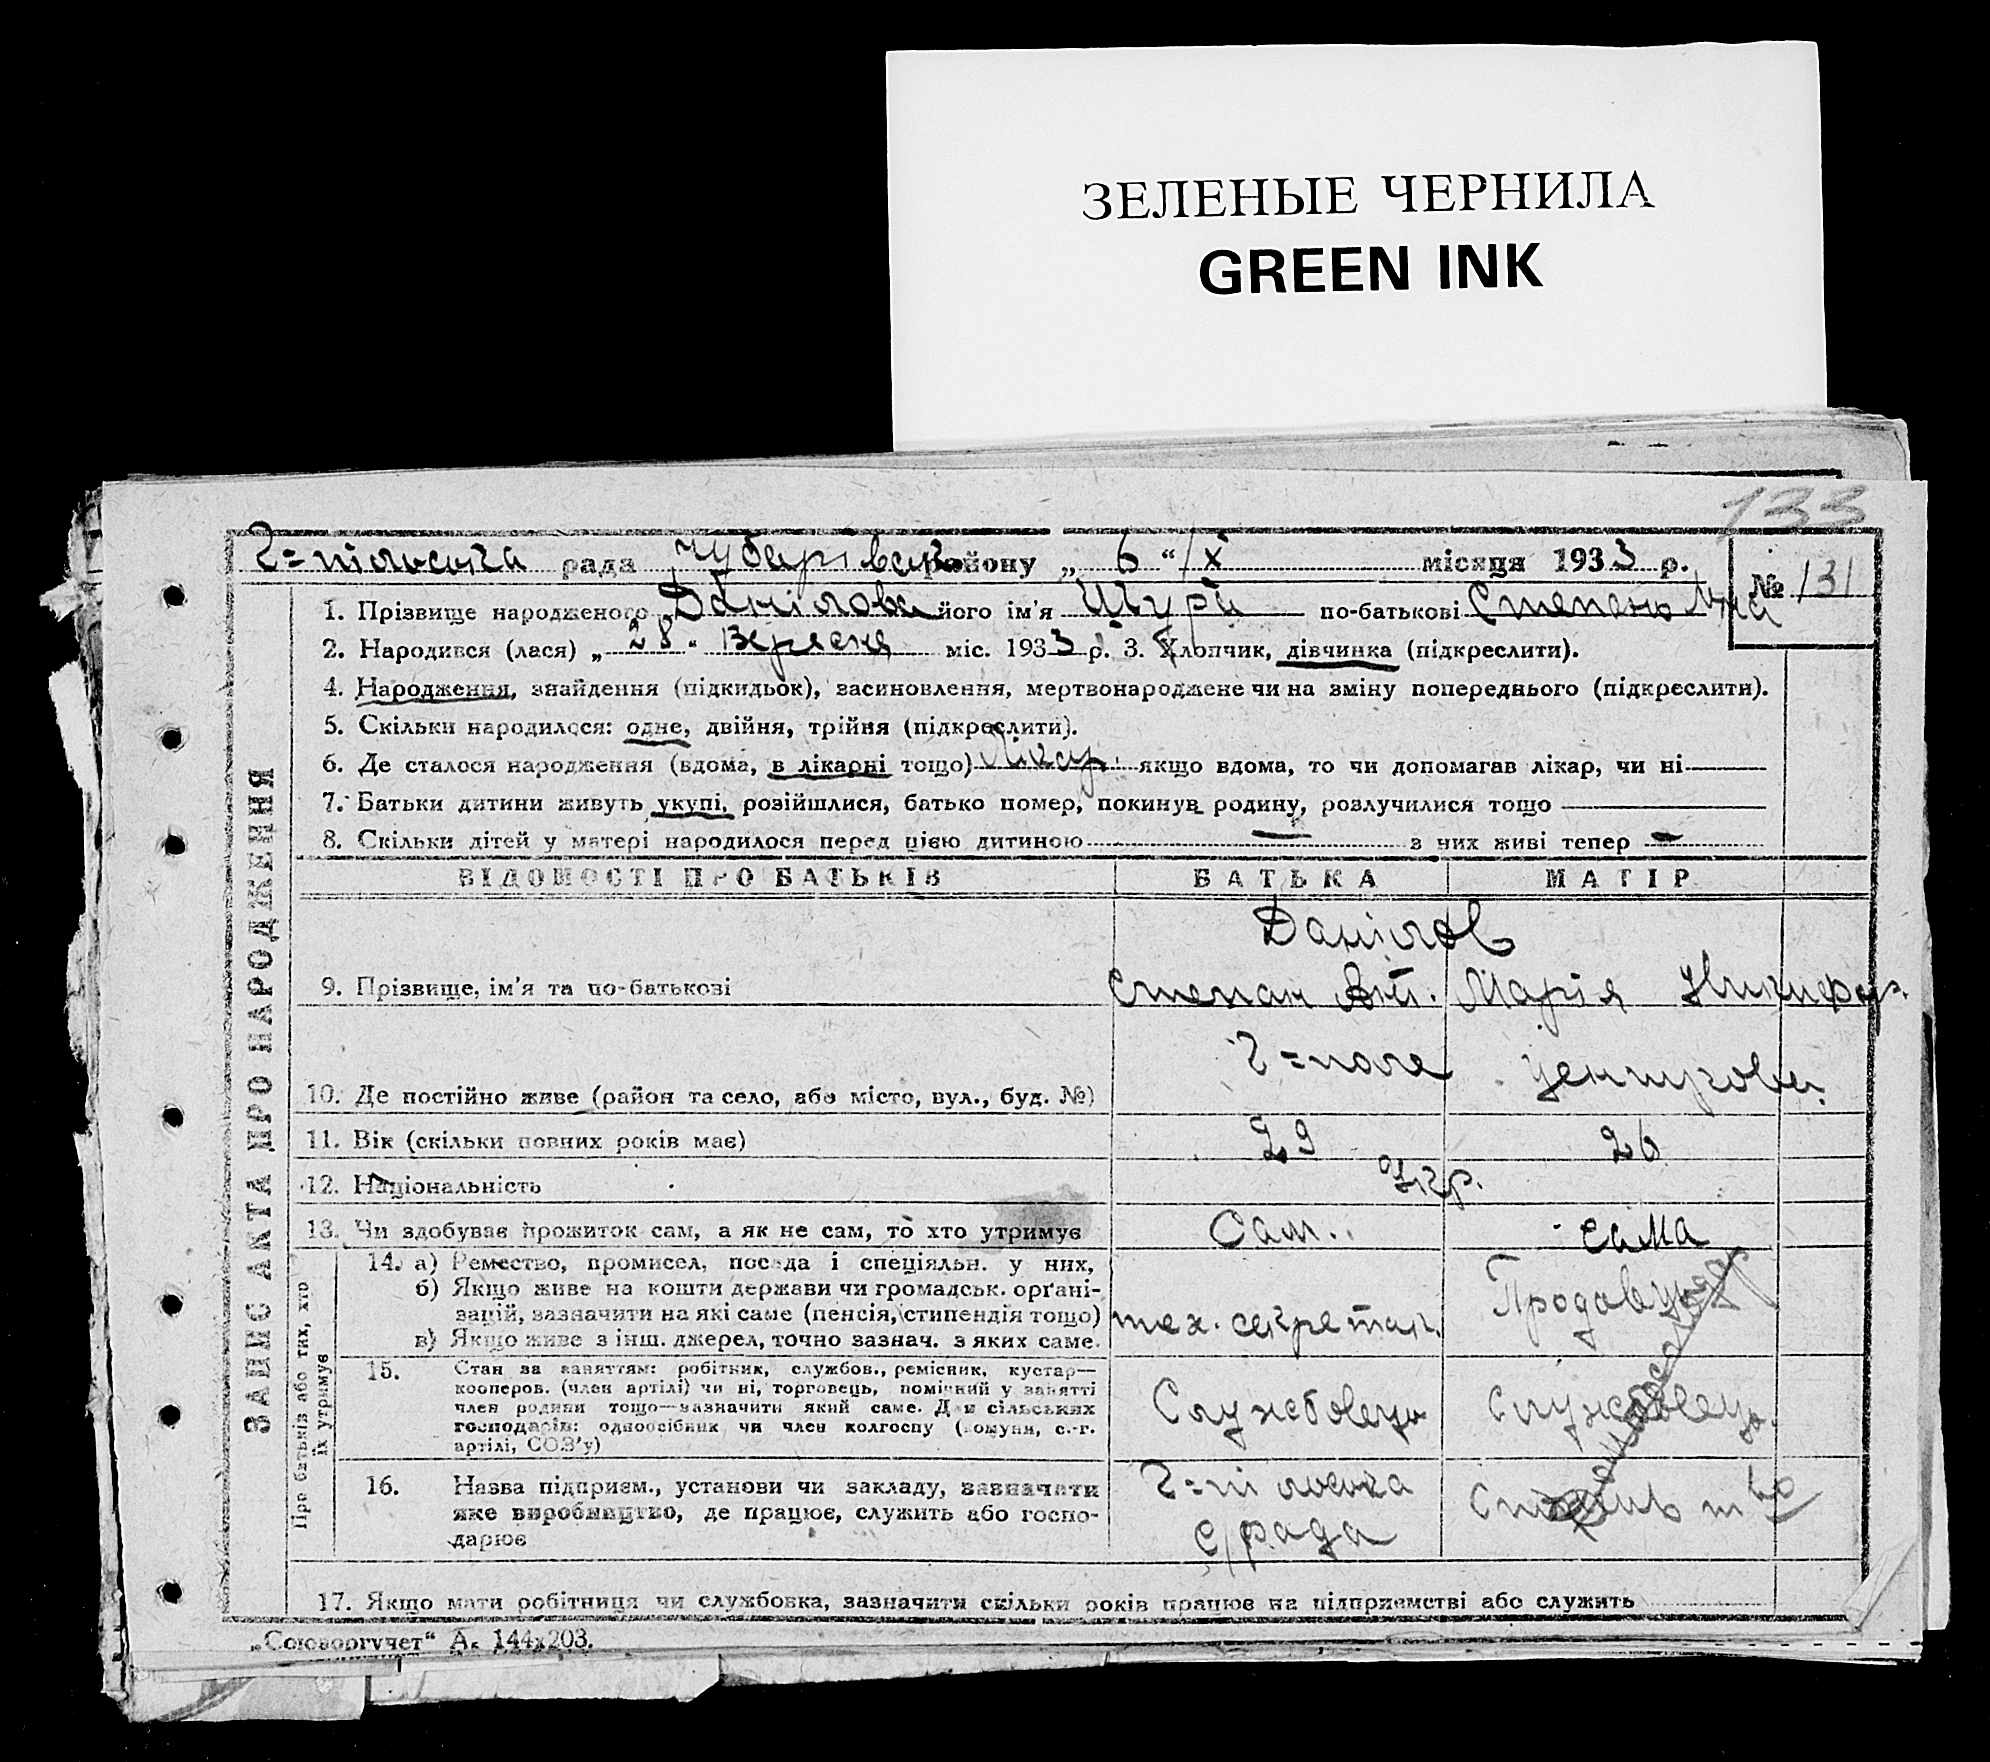 ЗЕЛЕНЫЕ ЧЕРНИЛА
GREEN INK
133
Г=пільська рада Чубарівськ району „ 6 “ /X місяця 1933 р.
№ 131
1. Прізвище народженого Данілова його ім'я Шура по-батькові Степановна
2. Народився (лася) „ 28 “ Вересня міс. 1933 р. 3. Хлопчик, дівчинка (підкреслити).
4. Народження, знайдення (підкидьок), засиновлення, мертвонароджене чи на зміну попереднього (підкреслити).
5. Скільки народилося: одне, двійня, трійня (підкреслити).
6. Де сталося народження (вдома, в лікарні тощо) Лікар. якщо вдома, то чи допомагав лікар, чи ні
7. Батьки дитини живуть укупі, розійшлися, батько помер, покинув родину, розлучилися тощо
8. Скільки дітей у матері народилося перед цією дитиною — з них живі тепер —
ЗАПИС АКТА ПРО НАРОДЖЕННЯ
ВІДОМОСТІ ПРО БАТЬКІВ БАТЬКА МАТІР
Данілов
9. Прізвище, ім'я та по-батькові Степан Ант. Марія Никифор.
10. Де постійно живе (район та село, або місто, вул., буд. №) Г=поле
11. Вік (скільки повних років має) 29 26
12. Національність Укр.
13. Чи здобуває прожиток сам, а як не сам, то хто утримує Сам. сама
Про батьків або тих, хто їх утримує
14. а) Ремество, промисел, посада і спеціяльн. у них,
б) Якщо живе на кошти держави чи громадськ. орґані-
зацій, зазначити на які саме (пенсія, стипендія тощо)
в) Якщо живе з інш. джерел, точно зазнач. з яких саме.
тех. секретар. Продавець
15. Стан за заняттям: робітник, службов., ремісник, кустар—
кооперов. (член артілі) чи ні, торговець, помічний у занятті
член родини тощо—зазначити який саме. Для сільських
господарів: одноосібник чи член колгоспу (комуни, с.-г.
артілі, СОЗ'у)
Службовець Службовець.
16. Назва підприєм., установи чи закладу, зазначити
яке виробництво, де працює, служить або госпо-
дарює
Г=пільська
с/рада
17. Якщо мати робітниця чи службовка, зазначити скільки років працює на підприємстві або служить
„Союзоргучет“ А. 144х203.